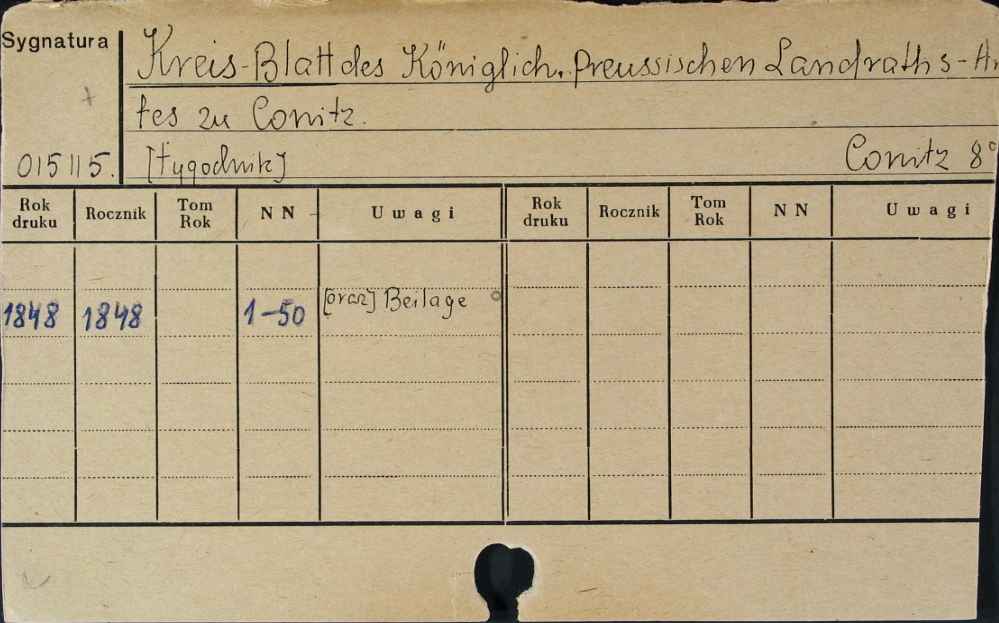 Sygnatura
Kreis-Blatt des Königlich. Preussischen Landraths-A
tes zu Conitz.
015115. [tygodnik] Conitz 8°
Rok druku Rocznik Tom Rok NN Uwagi Rok druku Rocznik Tom Rok NN Uwagi
1848 1848 1-50 [oraz] Beilage